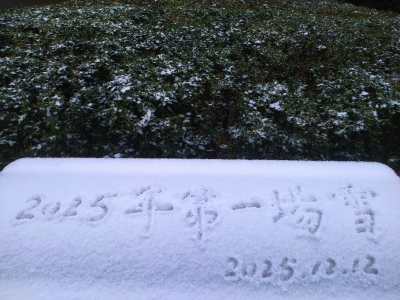 2025年第一場雪
2025.12.12